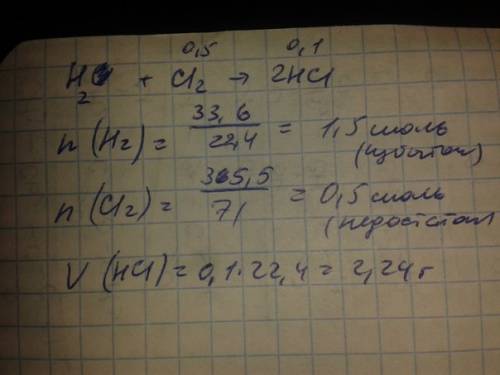 0,5 0,1
H2 + Cl2 → 2HCl
n (H2) = 33,6 / 22,4 = 1,5 моль
(избыток)
n (Cl2) = 365,5 / 71 = 0,5 моль
(недостаток
V (HCl) = 0,1·22,4 = 2,24 г